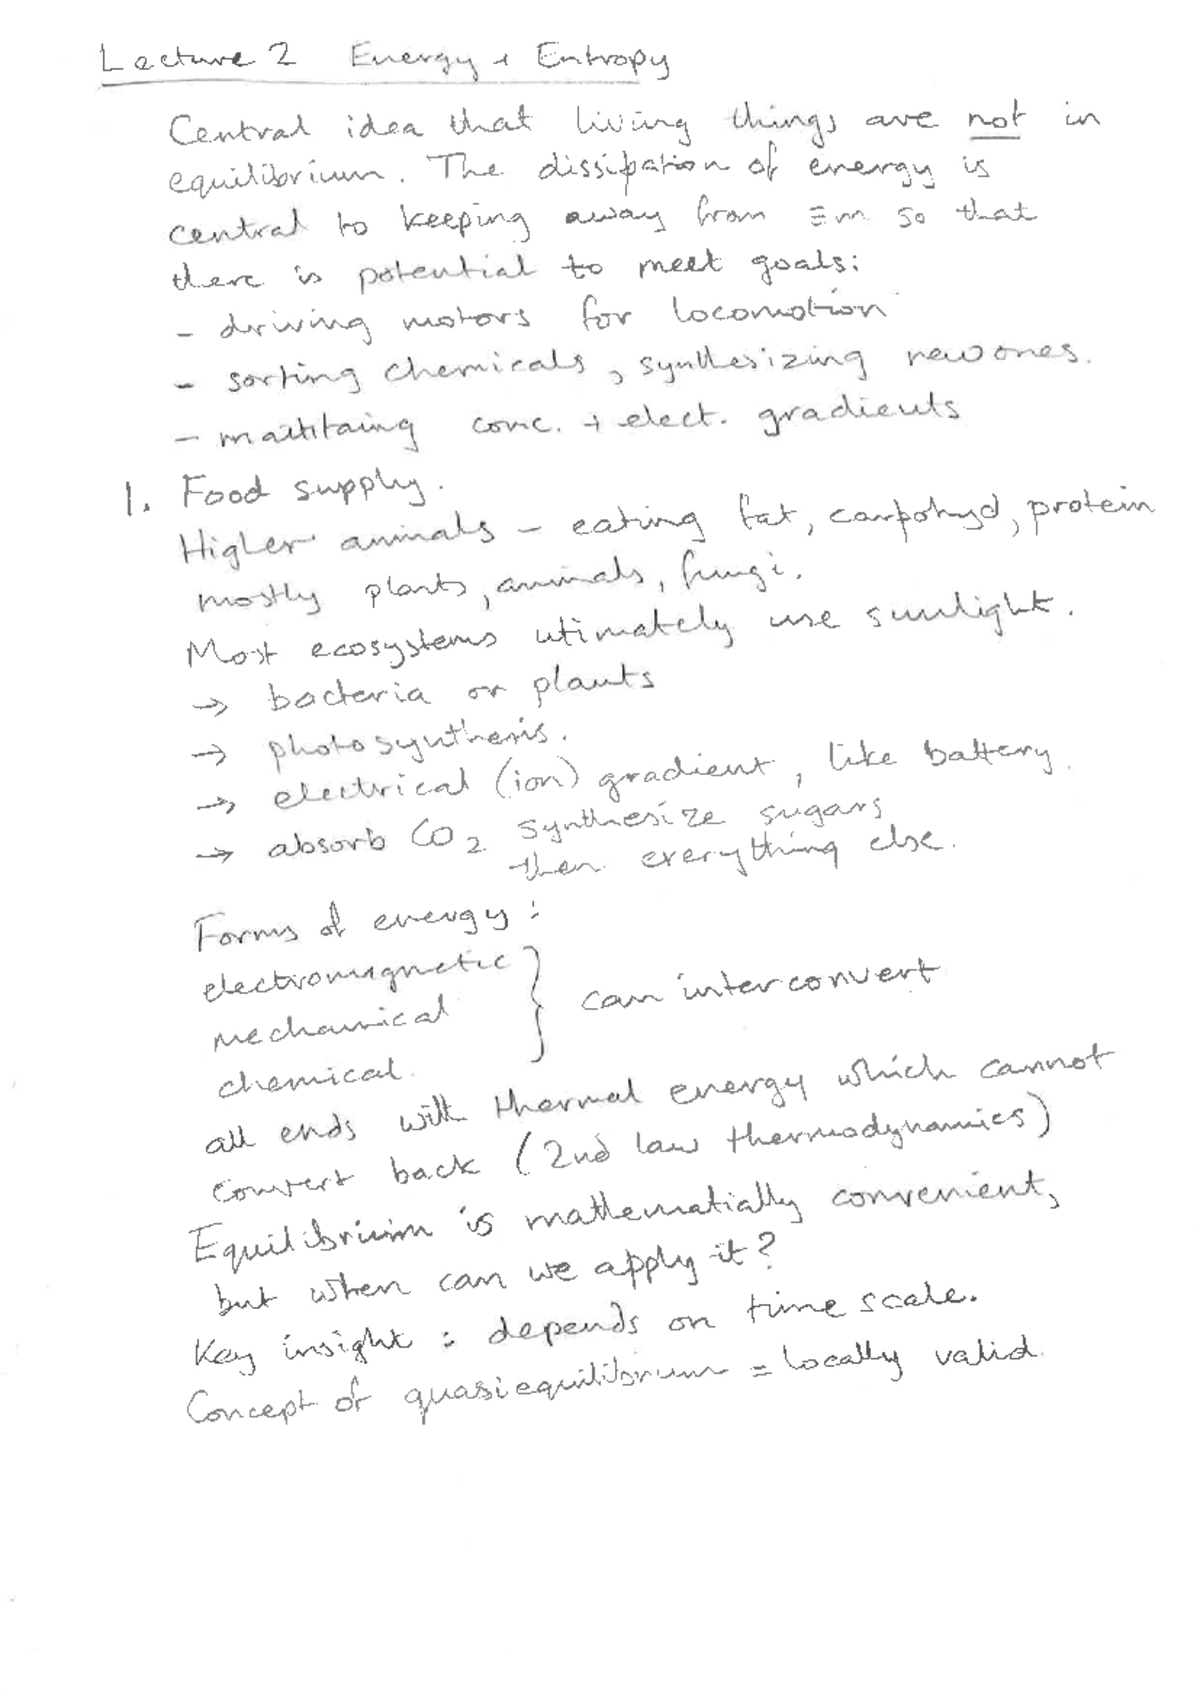 Lecture 2 Energy + Entropy
Central idea that living things are not in
equilibrium. The dissipation of energy is
central to keeping away from ≡m so that
there is potential to meet goals:
- driving motors for locomotion
- sorting chemicals, synthesizing new ones.
- maititaing conc. + elect. gradients
1. Food supply.
Higher animals - eating fat, carpohyd, protein
mostly plants, animals, fungi.
Most ecosystems utimately use sunlight.
→ bacteria or plants
→ photosynthesis.
→ electrical (ion) gradient, like battery.
→ absorb CO2 synthesize sugars
then everything else.
Forms of energy:
electromagnetic
mechanical } can interconvert
chemical.
all ends with thermal energy which cannot
convert back (2nd law thermodynamics)
Equilibrium is mathematially convenient,
but when can we apply it?
Key insight: depends on time scale.
Concept of quasiequilibrium = locally valid.